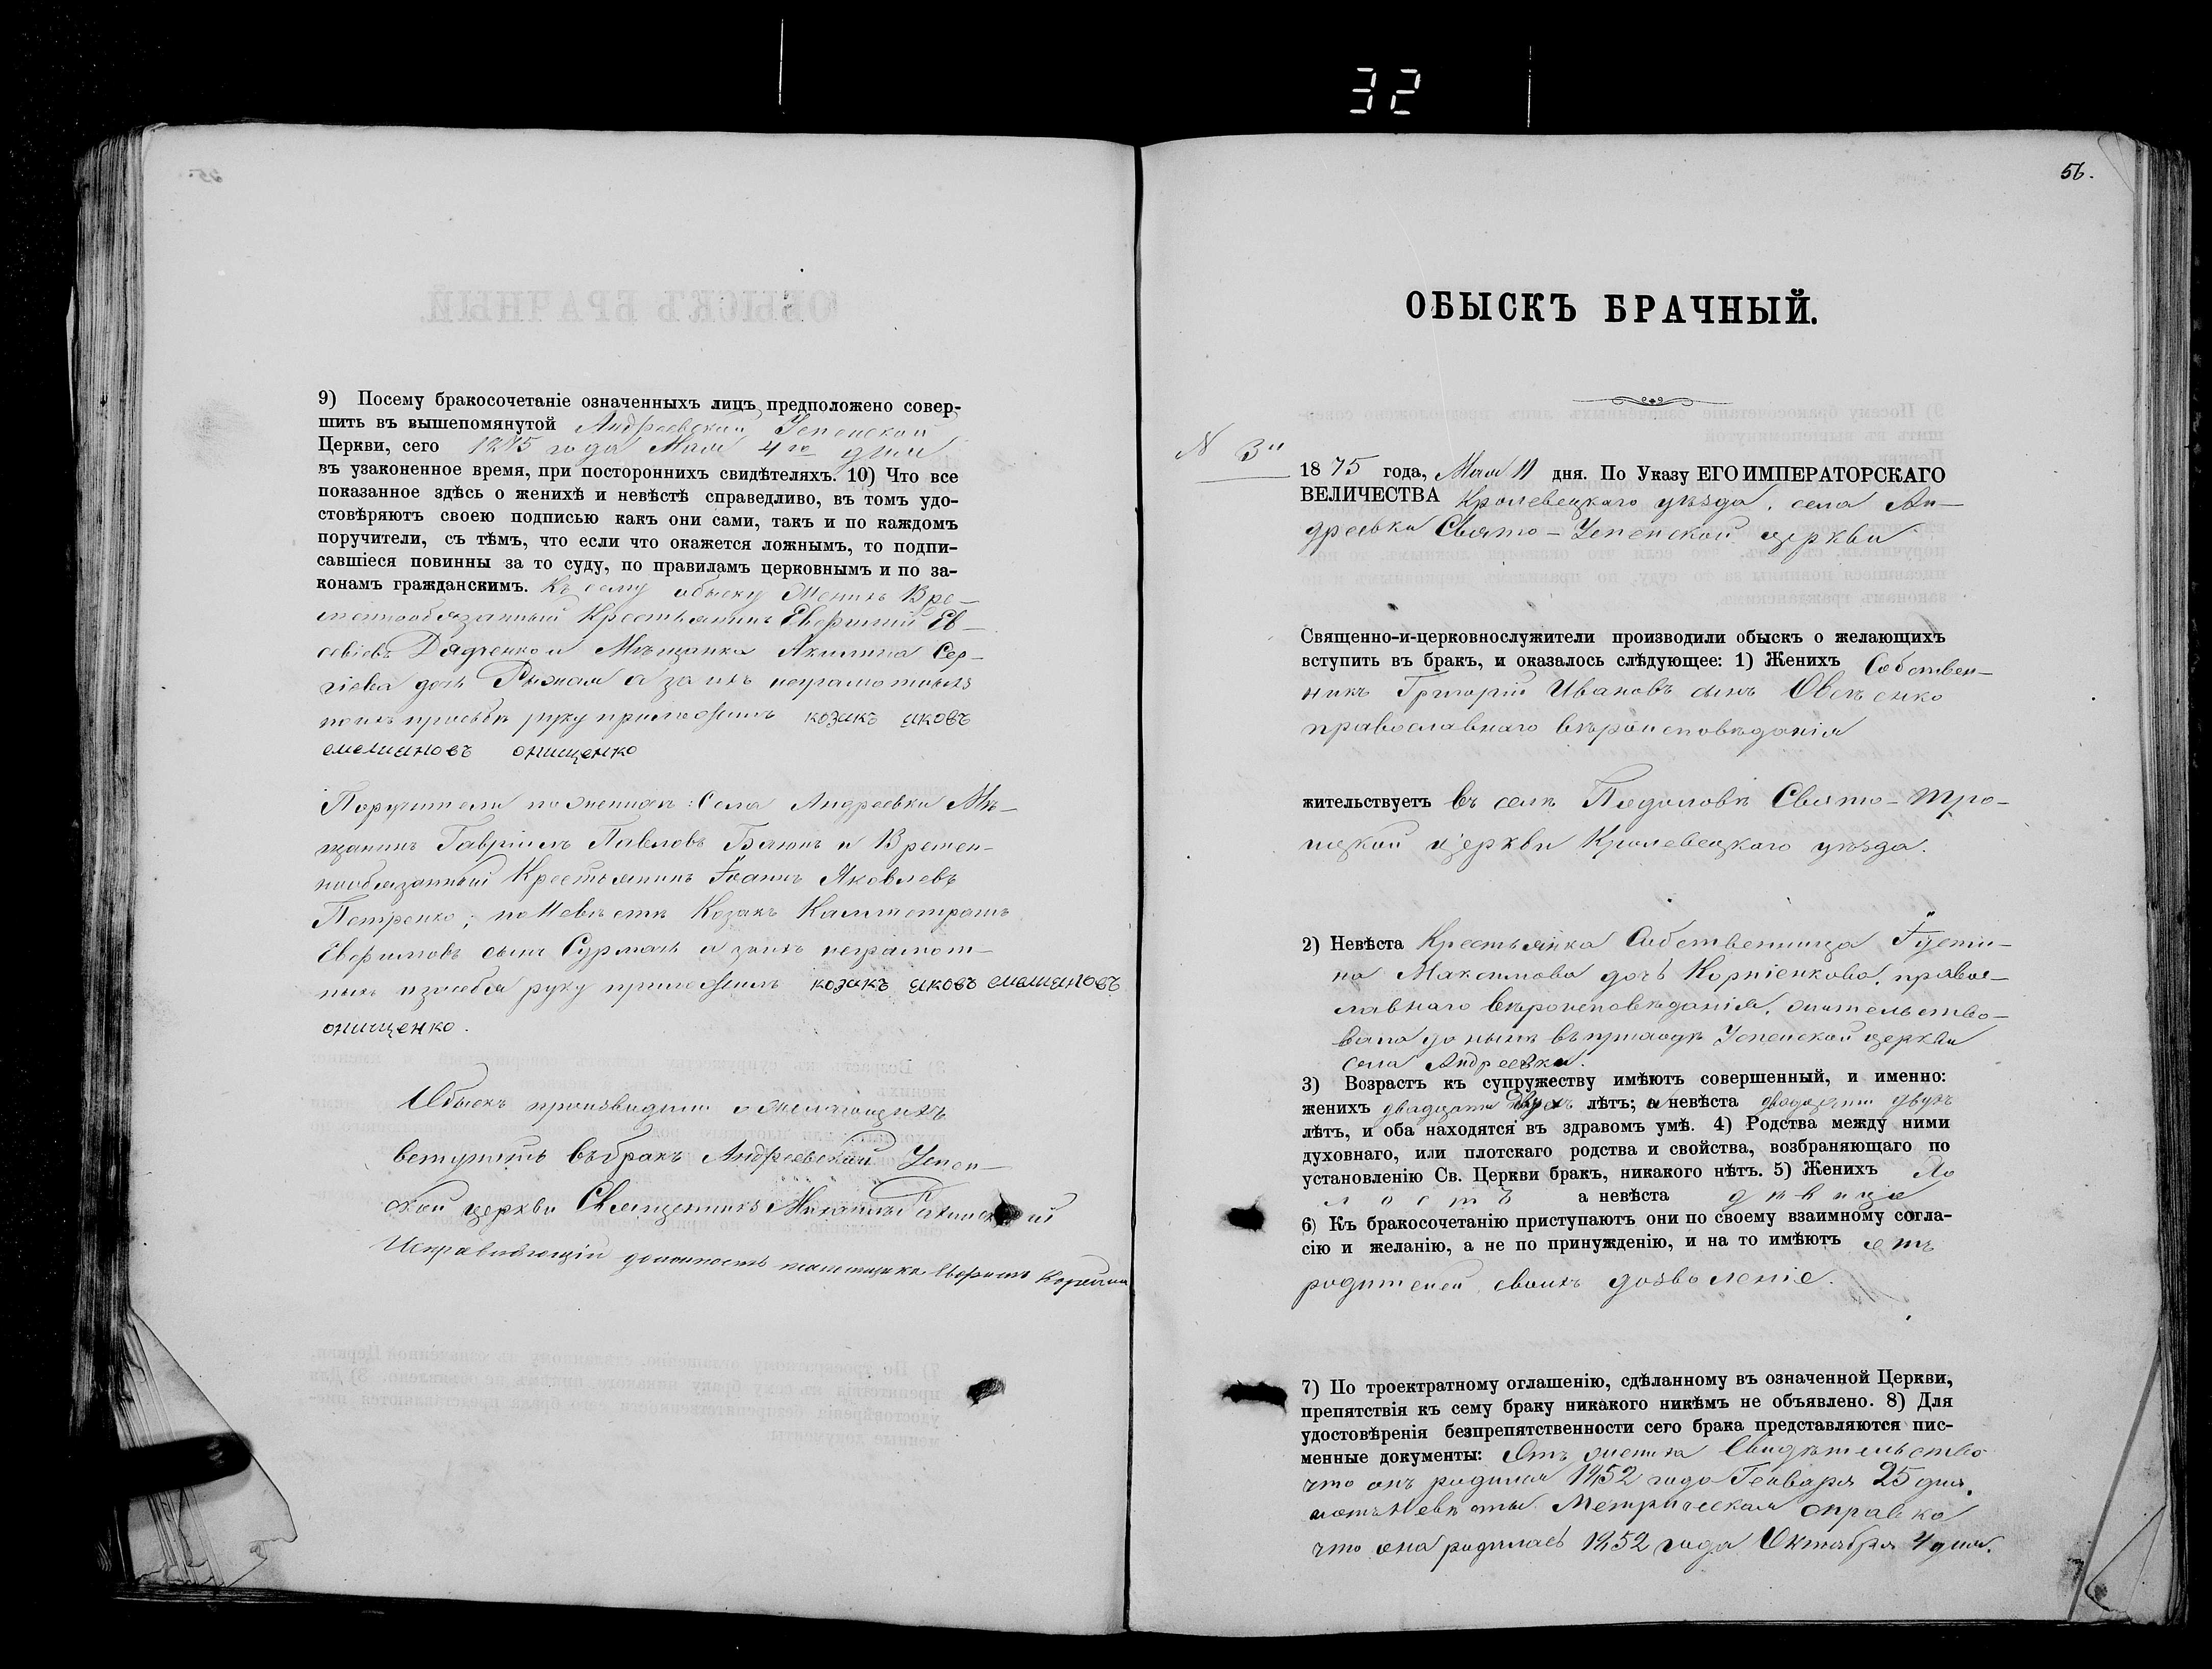 32
9) Посему бракосочетаніе означенныхъ лицъ предположено совер-
шить въ вышепомянутой Андреевской Успенской
Церкви, сего 1875 года Мая 4го дня
въ узаконенное время, при постороннихъ свидѣтеляхъ. 10) Что все
показанное здѣсь о женихѣ и невѣстѣ справедливо, въ томъ удо-
стовѣряютъ своею подписью какъ они сами, такъ и по каждомъ
поручители, съ тѣмъ, что если что окажется ложнымъ, то подпи-
савшіеся повинны за то суду, по правиламъ церковнымъ и по за-
конамъ гражданскимъ. Къ сему обыску Женихъ Вре-
меннообязанный Крестьянинъ Евфимій Ев-
сѣвіевъ Дядченко и Мѣщанка Акилина Сер-
гіева дочь Рыжая а за ихъ неграмотныхъ
по ихъ просьбѣ руку приложилъ козакъ яковъ
емелиановъ онищенко
Поручители по женихѣ: Села Андреевки Мѣ-
щанинъ Гавріилъ Павловъ Баюнъ и Времен-
нообязанный Крестьянинъ Іоаннъ Яковлевъ
Петренко; по Невѣстѣ Козакъ Каллистратъ
Евфимовъ сынъ Сурмачъ а за ихъ неграмот-
ныхъ руку приложилъ козакъ яковъ емелиановъ
онищенко.
Обыскъ производили о желающихъ
вступить въ бракъ Андреевской Успен-
ской церкви Священникъ Михаилъ
Исправляющій должность псаломщика Евфимъ
56.
ОБЫСКЪ БРАЧНЫЙ.
N 3й
1875 года, Мая 11 дня. По Указу ЕГО ИМПЕРАТОРСКАГО
ВЕЛИЧЕСТВА Кролевецкаго уѣзда, села Ан-
дреевки Свято-Успенской церкви
Священно-и-церковнослужители производили обыскъ о желающихъ
вступить въ бракъ, и оказалось слѣдующее: 1) Женихъ Собствен-
никъ Григорій Ивановъ сынъ Овсѣенко
православнаго вѣроисповѣданія
жительствуетъ въ селѣ Подоловѣ Свято-Тро-
ицкой церкви Кролевецкаго уѣзда.
2) Невѣста Крестьянка Собственница Іусти-
на Максимова дочь Корніенкова, правос-
лавнаго вѣроисповѣданія, жительство-
вала до нынѣ въ приходѣ Успенской церкви
села Андреевки.
3) Возрастъ къ супружеству имѣютъ совершенный, и именно:
женихъ двадцати трехъ лѣтъ; а невѣста двадцати двухъ
лѣтъ, и оба находятся въ здравомъ умѣ. 4) Родства между ними
духовнаго, или плотскаго родства и свойства, возбраняющаго по
установленію Св. Церкви бракъ, никакого нѣтъ. 5) Женихъ хо
лостъ а невѣста дѣвица
6) Къ бракосочетанію приступаютъ они по своему взаимному согла-
сію и желанію, а не по принужденію, и на то имѣютъ отъ
родителей своихъ дозволеніе.
7) По троектратному оглашенію, сдѣланному въ означенной Церкви,
препятствія къ сему браку никакого никѣмъ не объявлено. 8) Для
удостовѣренія безпрепятственности сего брака представляются пис-
менные документы: Отъ жениха Свидѣтельство
что онъ родился 1852 года Генваря 25 дня.
а отъ Невѣсты Метрическая справка
что она родилась 1852 года Октября 4 дня.